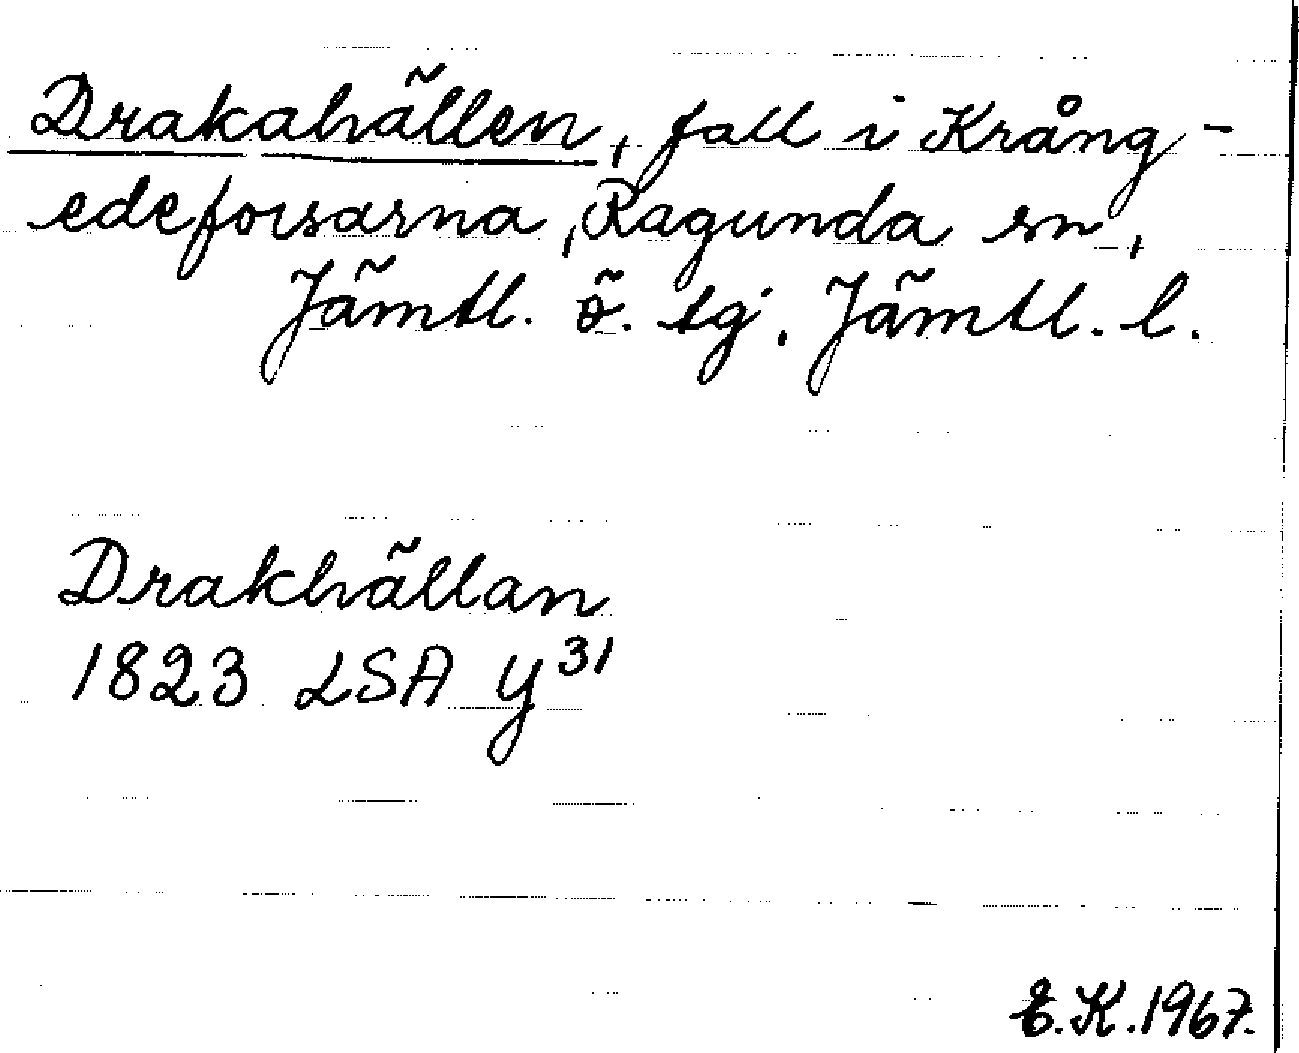 Drakahällen, fall i Krång-
edeforsarna, Ragunda sn,
Jämtl. ö. tg, Jämtl. l.
Drakhällan
1823 LSA Y³¹
E.K.1967.